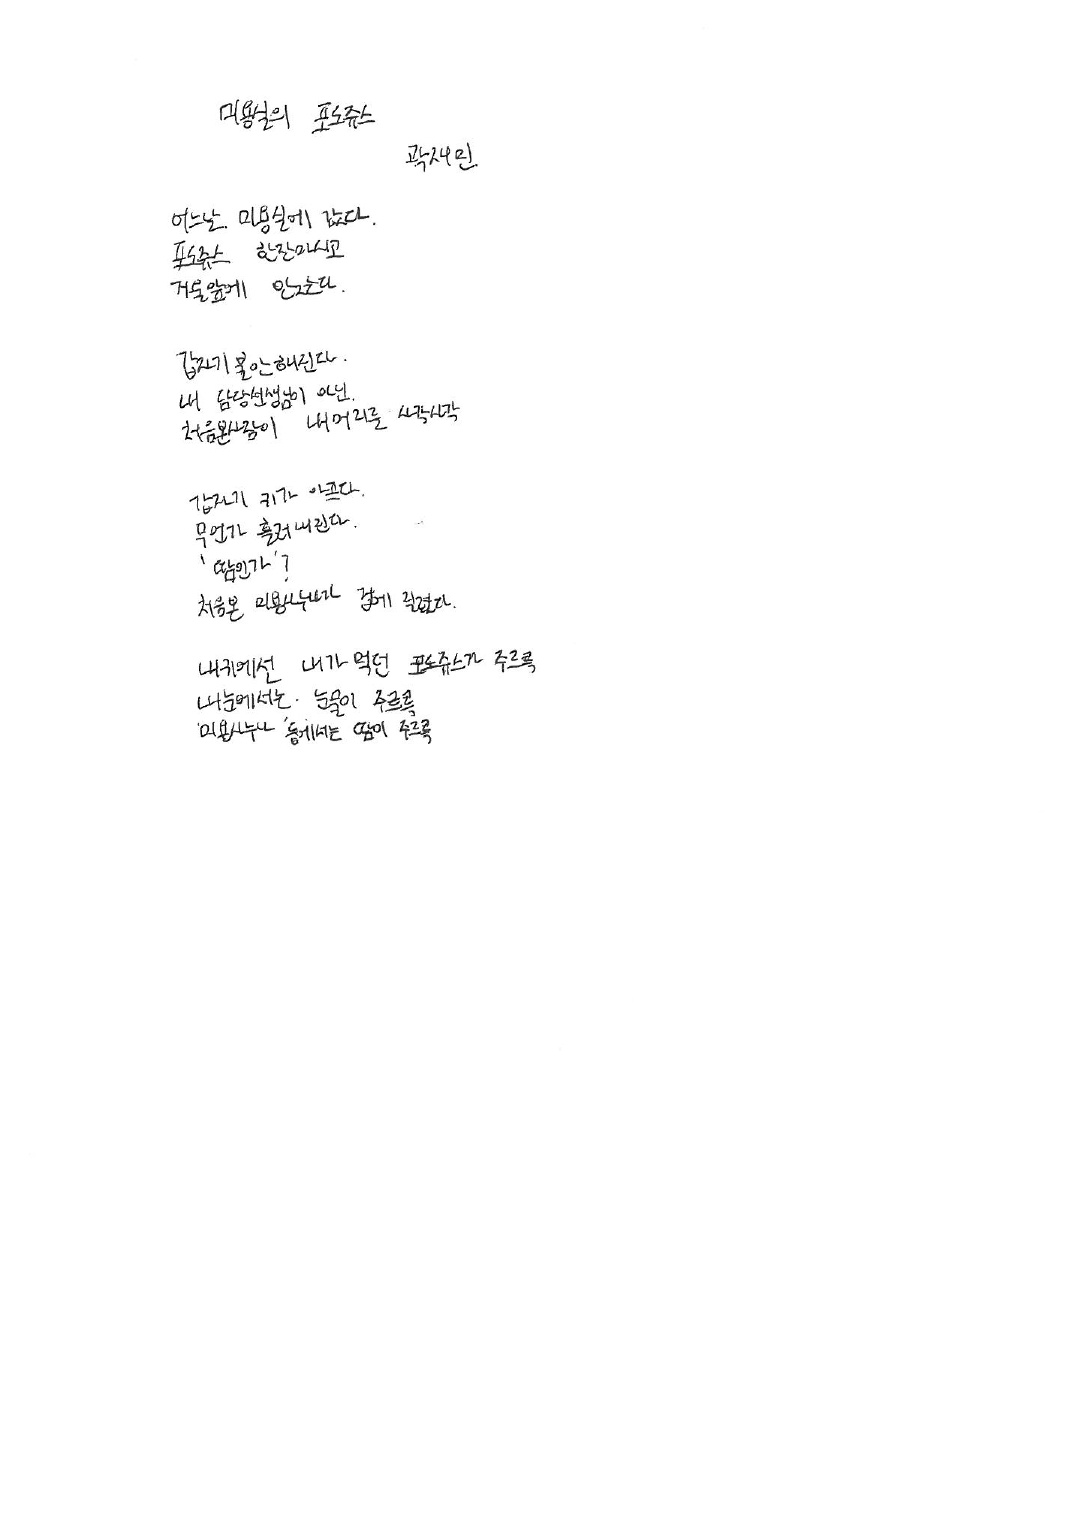 미용실의 포도쥬스
곽재민
어느날. 미용실에 갔다.
포도쥬스 한잔마시고
거울앞에 앉았다.
갑자기 불안해진다.
내 담당선생님이 아닌.
처음본사람이 내머리를 사각사각
갑자기 귀가 아프다.
무언가 흘러내린다.
'땀인가'?
처음본 미용사누나가 겁에 질렸다.
내귀에선 내가 먹던 포도쥬스가 주르륵
내눈에서는. 눈물이 주르륵
미용사누나 등에서는 땀이 주르륵